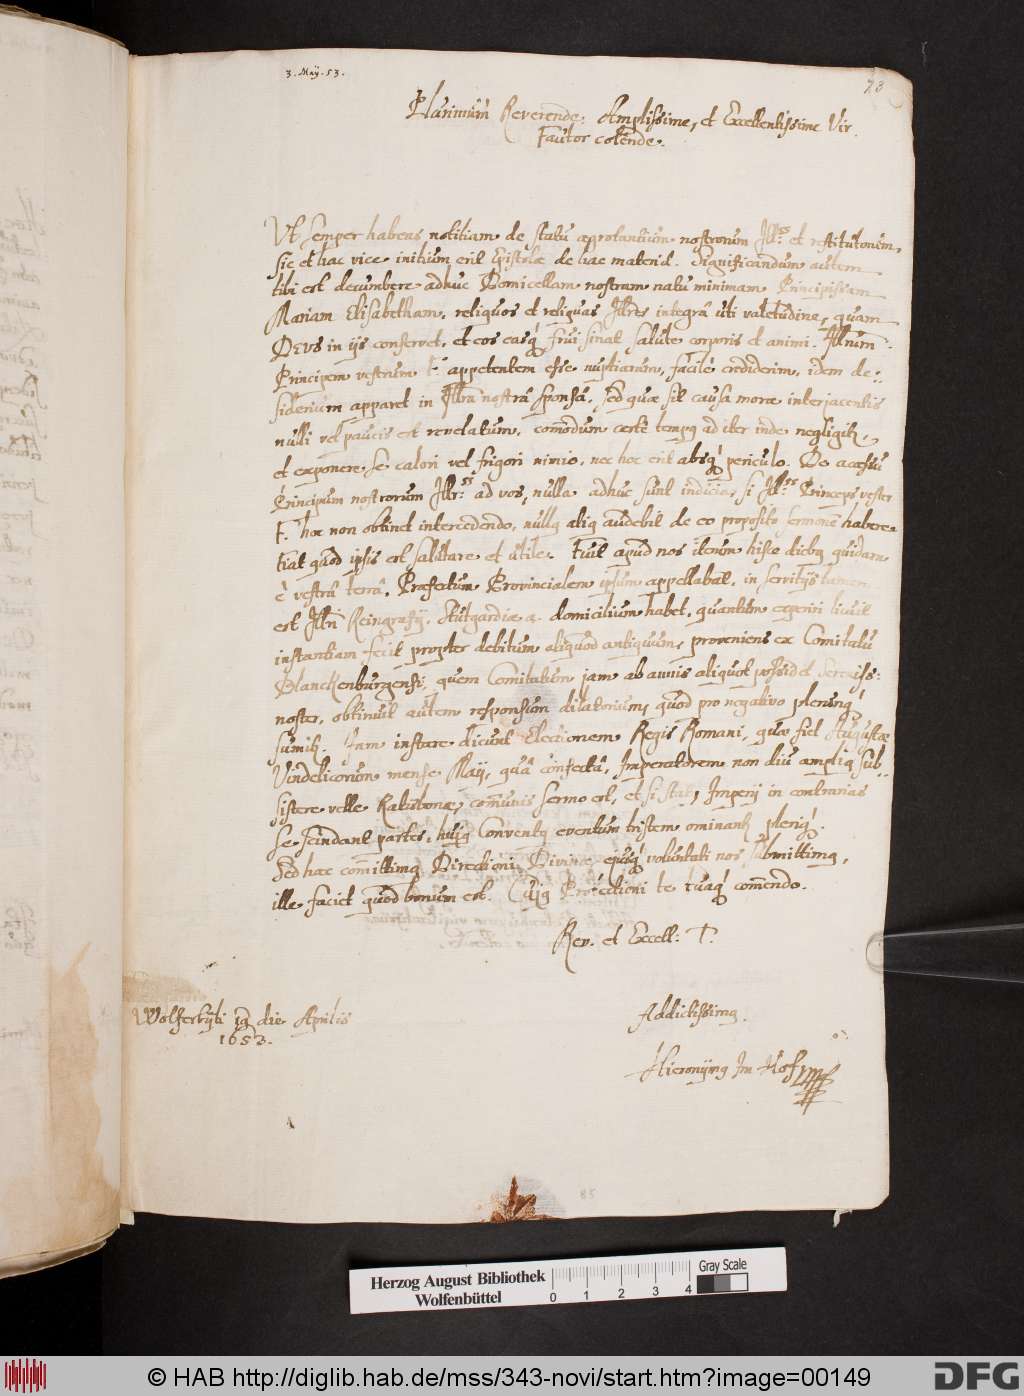 3. Maÿ. 53.
73
Plurimùm Reverende, Amplissime, et Excellentissime Vir.
Fautor colende.
Ut semper habeas notitiam de statu ægrotantium nostrorum Ill:ss et restitutorum,
sic et hac vice initium erit Epistolæ de hac materiâ. Significandum autem
tibi est decumbere adhuc Domicellam nostram natu minimam Principissam
Mariam Elisabetham, reliquos et reliquas Illres integrâ uti valetudine, quam
DEUS in ijs conservet, et eos easq́ frui sinat salute corporis et animi. Illrum
Principem vestrum F. appetentem esse nuptiarum, facilè crediderim, idem de-:
siderium apparet in Illma nostrâ sponsâ. sed quæ sit causa moræ interjacentis
nulli vel paucis est revelatum. comodum certè tempq ad iter inde negligitr,
et exponere se calori vel frigori nimio, nec hoc erit absq́ periculo. De accessu
Principum nostrorum Illr:ss ad vos, nulla adhuc sunt indicia, si Ill:ss Princeps vester
F. hoc non obtinet intercedendo, nullq aliq audebit de eo proposito sermonē habere.
fiat quod ipsis est salutare et utile. Fuit apud nos iterum hisce diebq quidam
è vestrâ terrâ, Præfectum Provincialem ipsum appellabat, in servitijs tamen
est Illmi Reingrafij, Stutgardiæ domicilium habet, quantum experiri licuit
instantiam fecit propter debitum aliquod antiquum, proveniens ex Comitatu
Blanckenburgensi, quem Comitatum jam ab annis aliquot possidet Sereniss:
noster, obtinuit autem responsum dilatorium, quod pro negativo plerunq́
sumitr. Jam instare dicunt Electionem Regis Romani, quæ fiet Augustæ
Vindelicorum mense Maij, quâ confectâ, Imperatorem non diu ampliq sub-:
sistere velle Ratisbonæ, comunis sermo est, et si statq Imperij in contrarias
se scindant partes, hujq Conventq eventum tristem ominantr pleriq́.
Sed hæc comittimq Directioni Divinæ, ejusq́ voluntati nos submittimq,
ille faciet quod bonum est. Cujq Protectioni te tuaq́ comendo.
Rev. et Excell: T.
Wolferbÿti 19 die Aprilis
1653.
Addictissimq.
Hieronÿmq Im Hof
85
Herzog August Bibliothek
Wolfenbüttel
0 1 2 3 4
Gray Scale
© HAB http://diglib.hab.de/mss/343-novi/start.htm?image=00149
DFG